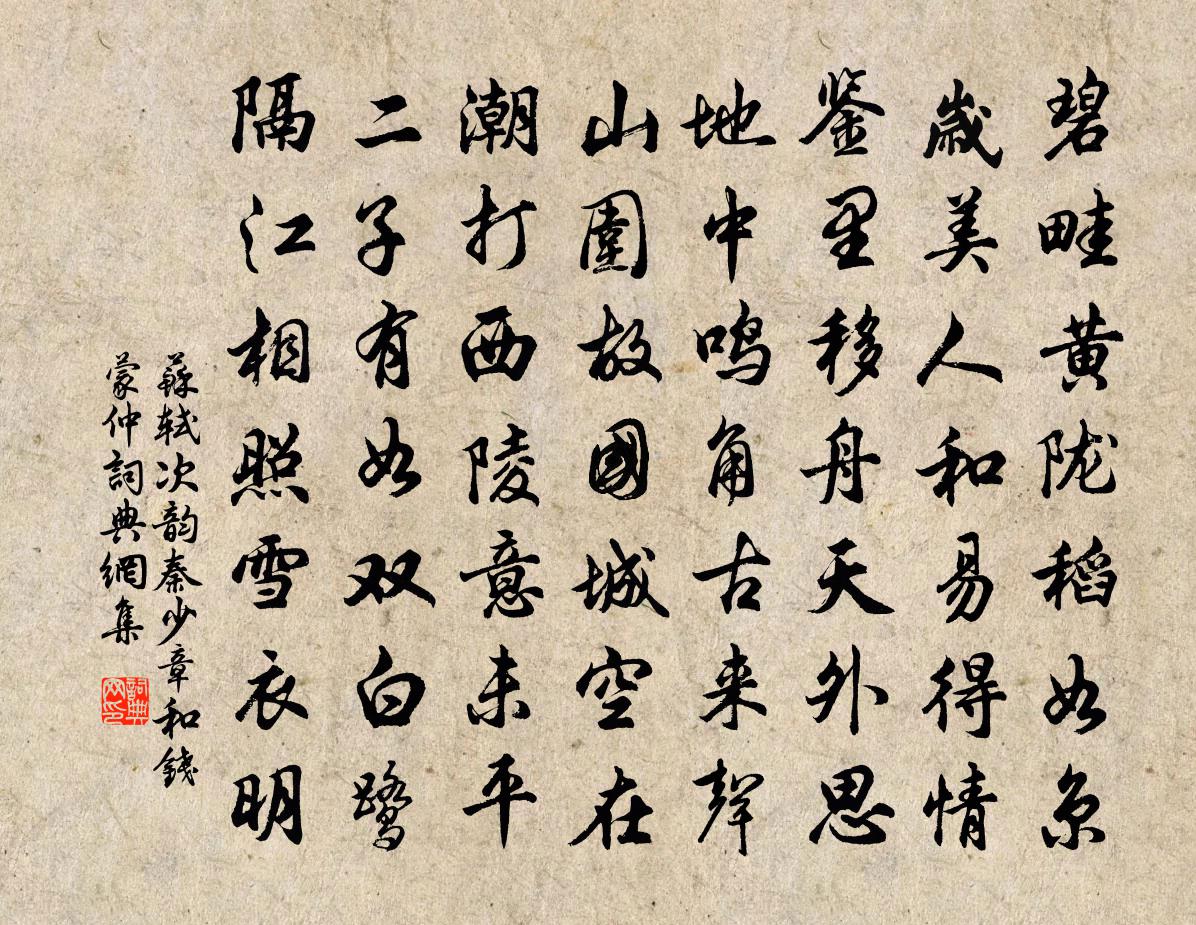 碧畦黄陇稻如京
歲美人和易得情
鉴里移舟天外思
地中鸣角古来聲
山圍故國城空在
潮打西陵意未平
二子有如双白鹭
隔江相照雪衣明
蘇轼次韵秦少章和錢
蒙仲詞典網集
詞典
网印